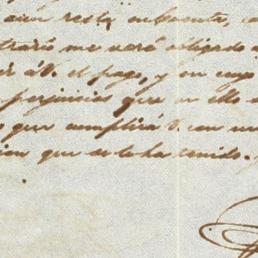 aun resta en cuenta, co
trario me veré obligado a
ir á V. el pago, y en cuyo
perjuicios que en ello
que cumplirá V. con
cion que se le ha tenido.